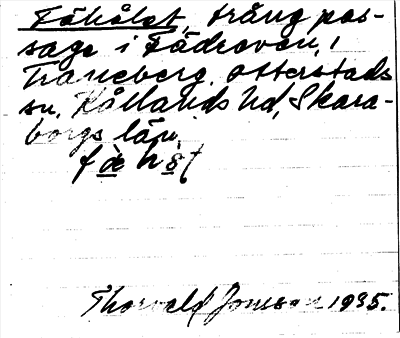 Fähålet, trång pas-
sage i Fädreven, i
Traneberg, Otterstads
sn, Kållands hd, Skara-
borgs län.
Thorvald Jonsson 1935.